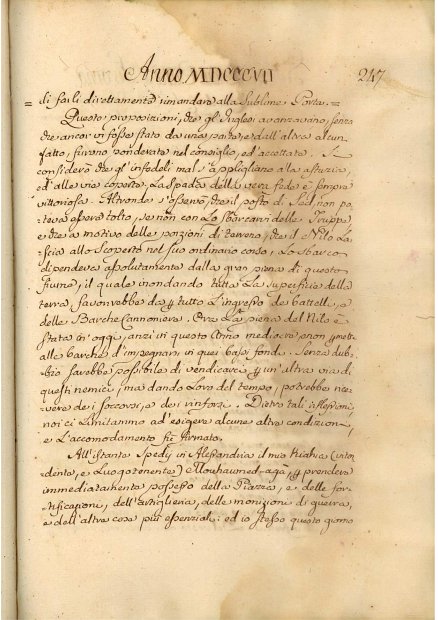 Anno MDCCCVII 247
= di farli direttamente rimandare alla Sublime Porta. =
Queste proposizioni, che gl'Inglesi avanzavano, senza
che ancor vi fosse stato da una parte, e dall'altra alcun
fatto, furono ponderate nel consiglio, ed accettate. Si
considerò che gl'infedeli mal s'appligliano alla astuzia,
ed alle vie coperte. La Spada della vera fede è sempre
vittoriosa. Altronde s'osservò, che il posto di Sed, non po-
teva essere tolto, se non con lo sbarcarvi delle Truppe
e che a motivo delle porzioni di terreno, che il Nilo la-
scia allo scoperto nel suo ordinario corso, lo sbarco
dipendeva assolutamente dalla gran piena di questo
fiume, il quale inondando tutta la superficie della
terra, favorirebbe da per tutto l'ingresso de' battelli, e
delle Barche Cannoniere. Ora la piena del Nilo è
stata in oggi, anzi in questo Anno mediocre, e non permette
alle barche d'impegnarsi in quei bassi fondi. Senza dub-
bio sarebbe possibile di vendicarci per un'altra via di
questi nemici, ma dando loro del tempo, potrebbero rice-
vere dei soccorsi, e dei rinforzi. Dietro tali riflessioni,
noi ci limitammo ad esigere alcune altre condizioni,
e l'accomodamento fù firmato.
All'istante spedij in Alessandria il mio Kiahia (inten-
dente, e Luogotenente) Mouhammed-agà, per prendere
immediatamente possesso della Piazza, e delle for-
tificazioni, dell'artiglieria, delle monizioni di guerra,
e dell'altre cose più essenziali: ed io stesso questo giorno